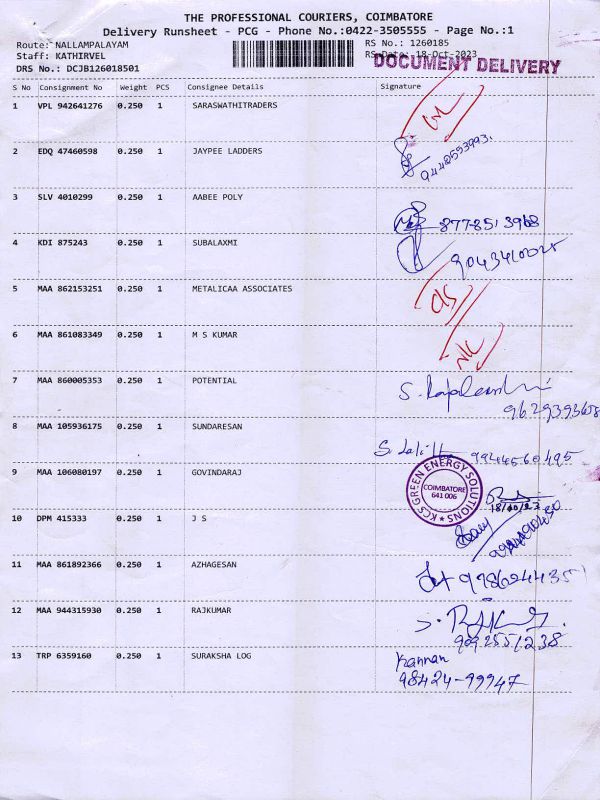 THE PROFESSIONAL COURIERS, COIMBATORE
Delivery Runsheet - PCG - Phone No.:0422-3505555 - Page No.:1
Route: NALLAMPALAYAM
RS No.: 1260185
Staff: KATHIRVEL
RS Date: 18-Oct-2023
DRS No.: DCJB126018501
DOCUMENT DELIVERY
S No Consignment No Weight PCS Consignee Details Signature
1 VPL 942641276 0.250 1 SARASWATHITRADERS
2 EDQ 47460598 0.250 1 JAYPEE LADDERS
3 SLV 4010299 0.250 1 AABEE POLY 877851 3968
4 KDI 875243 0.250 1 SUBALAXMI
5 MAA 862153251 0.250 1 METALICAA ASSOCIATES
6 MAA 861083349 0.250 1 M S KUMAR
7 MAA 860005353 0.250 1 POTENTIAL
8 MAA 105936175 0.250 1 SUNDARESAN 9944560495
9 MAA 106080197 0.250 1 GOVINDARAJ
KCS GREEN ENERGY SOLUTIONS
COIMBATORE
641 006
18/10/23
10 DPM 415333 0.250 1 J S
11 MAA 861892366 0.250 1 AZHAGESAN 9786244351
12 MAA 944315930 0.250 1 RAJKUMAR
9092551238
13 TRP 6359160 0.250 1 SURAKSHA LOG Kannan
98424-99947